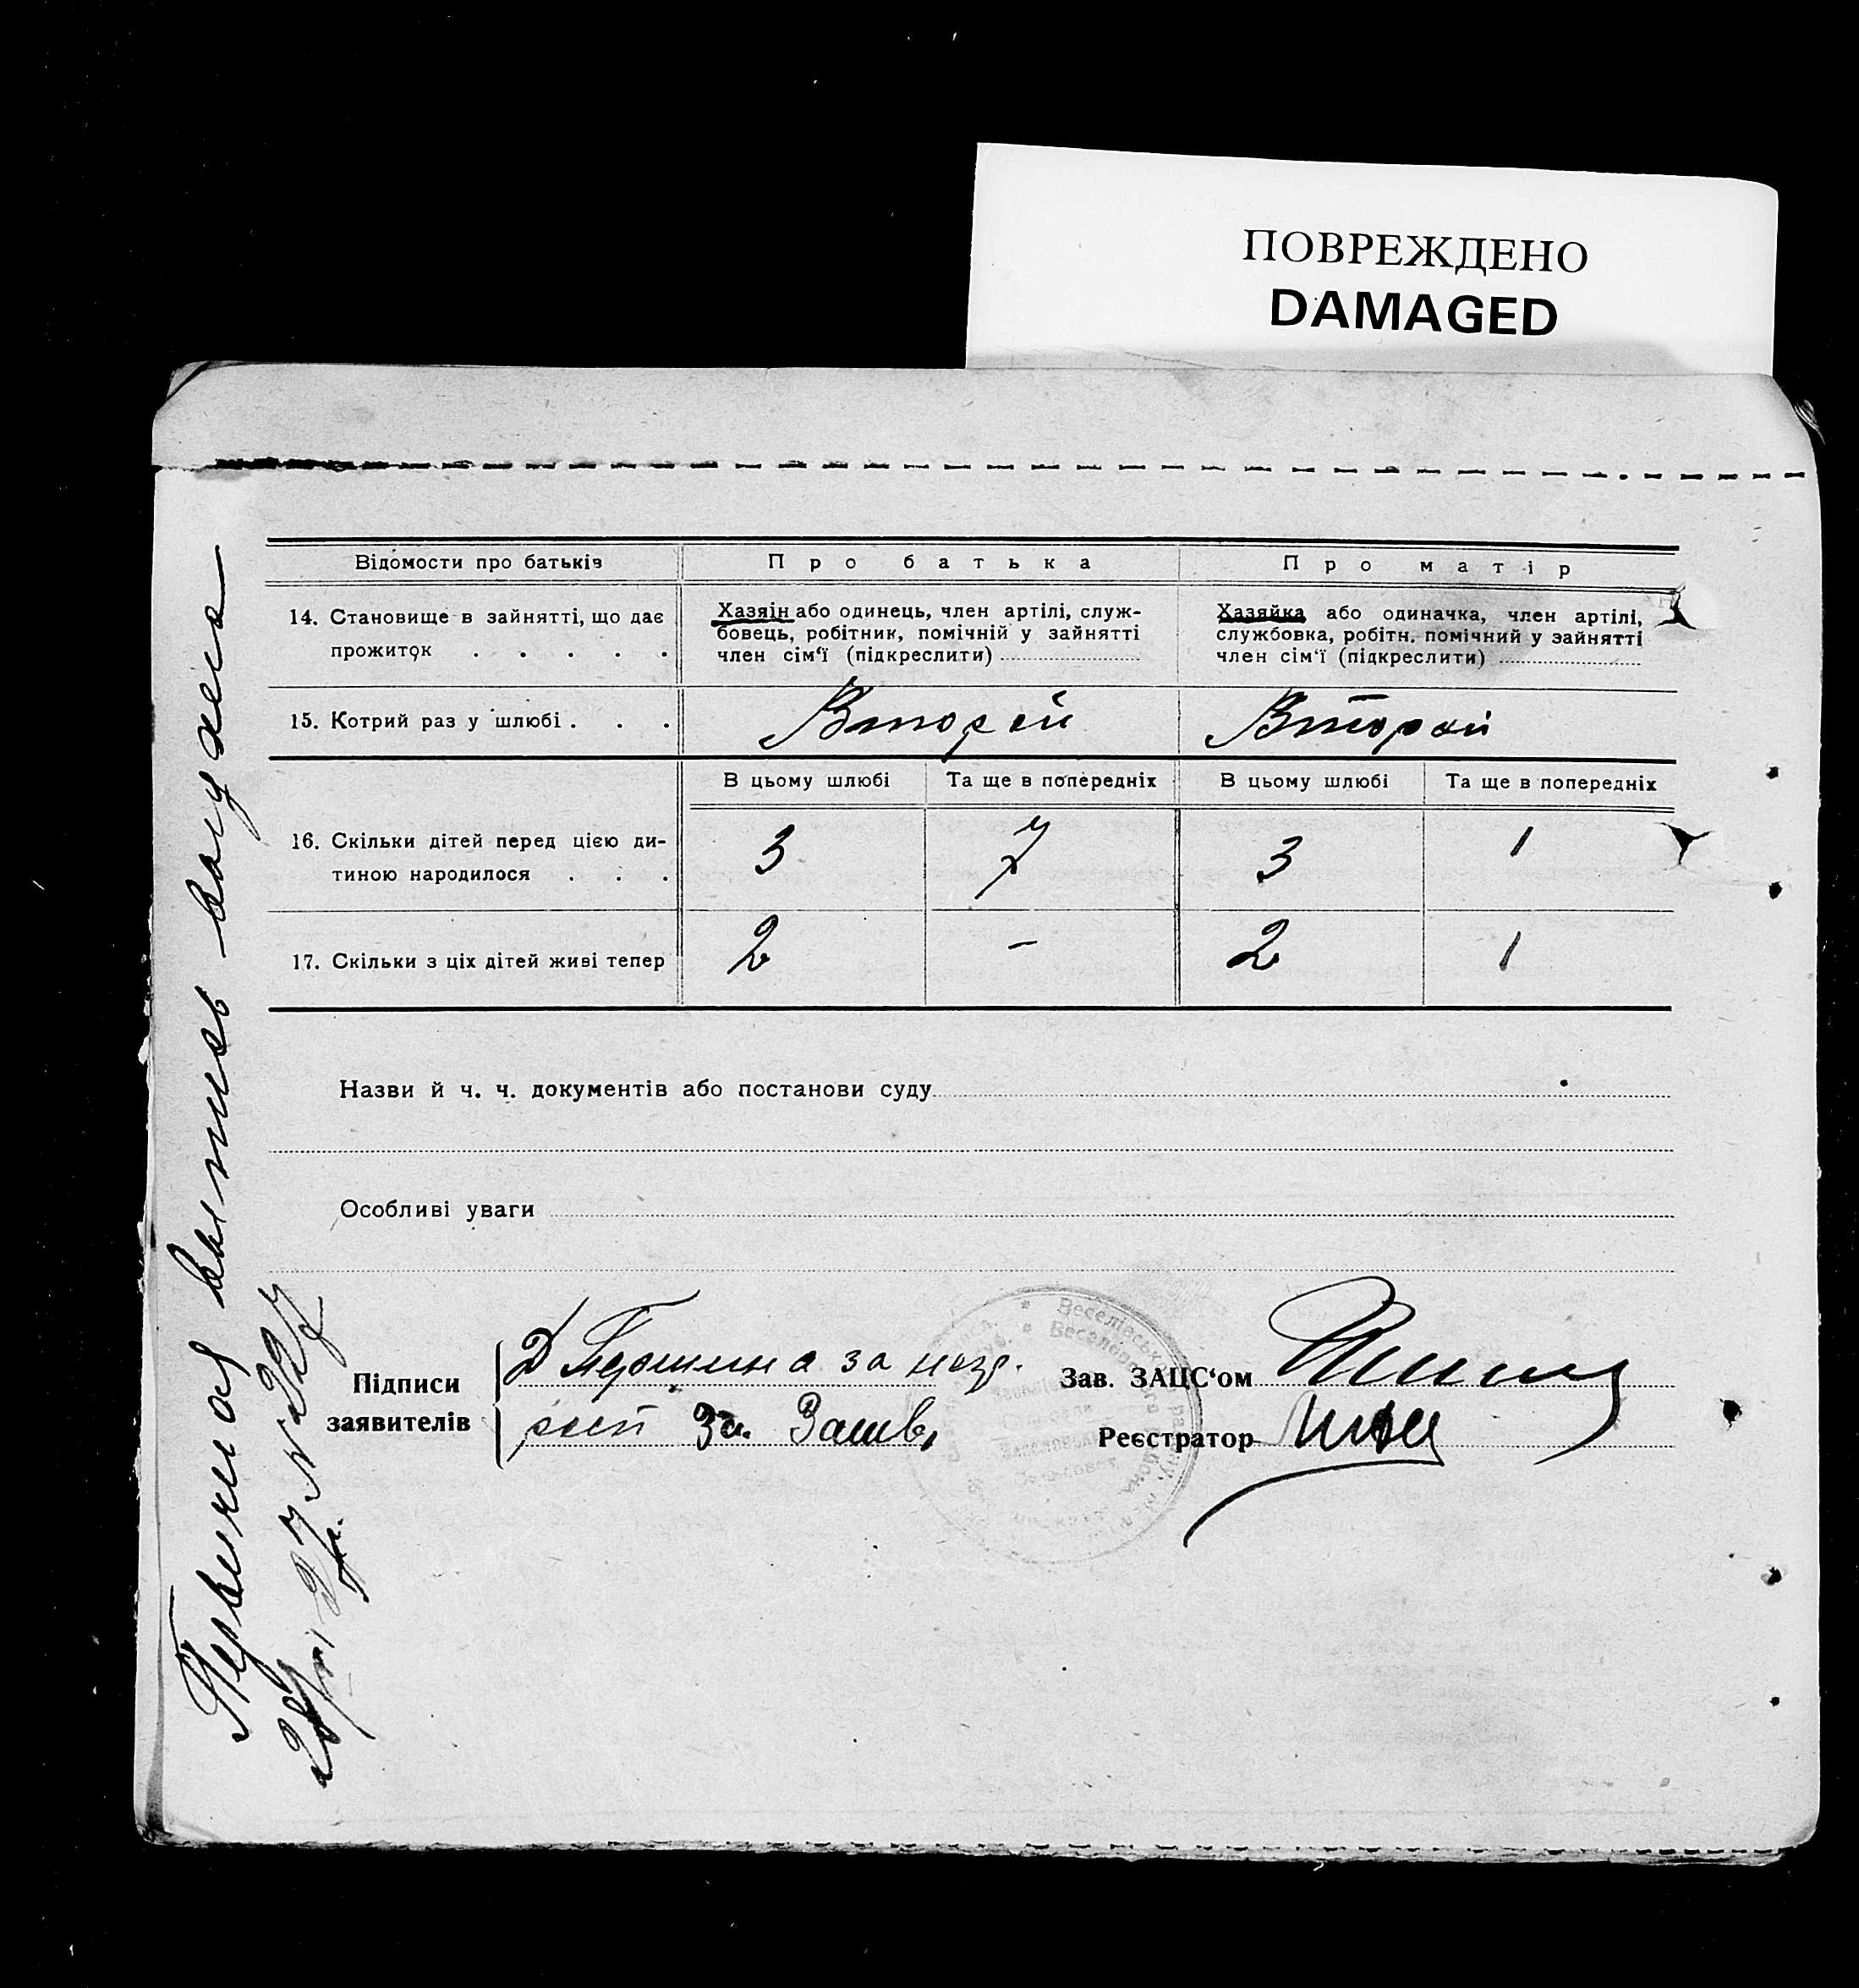 ПОВРЕЖДЕНО
DAMAGED
Відомости про батьків
Про батька
Про матір
14. Становище в зайнятті, що дає
прожиток . . . . .
Хазяін або одинець, член артілі, служ-
бовець, робітник, помічній у зайнятті
член сім‘ї (підкреслити)
Хазяйка або одиначка, член артілі,
службовка, робітн. помічний у зайнятті
член сім‘ї (підкреслити)
15. Котрий раз у шлюбі . . .
Второй
Второй
В цьому шлюбі
Та ще в попередніх
В цьому шлюбі
Та ще в попередніх
16. Скільки дітей перед цією ди-
тиною народилося . . .
3
7
3
1
17. Скільки з ціх дітей живі тепер
2
–
2
1
Назви й ч. ч. документів або постанови суду
Особливі уваги
Підписи
заявителів
за
За
Зав. ЗАЦС‘ом
Реєстратор
Первичная выпись выдана